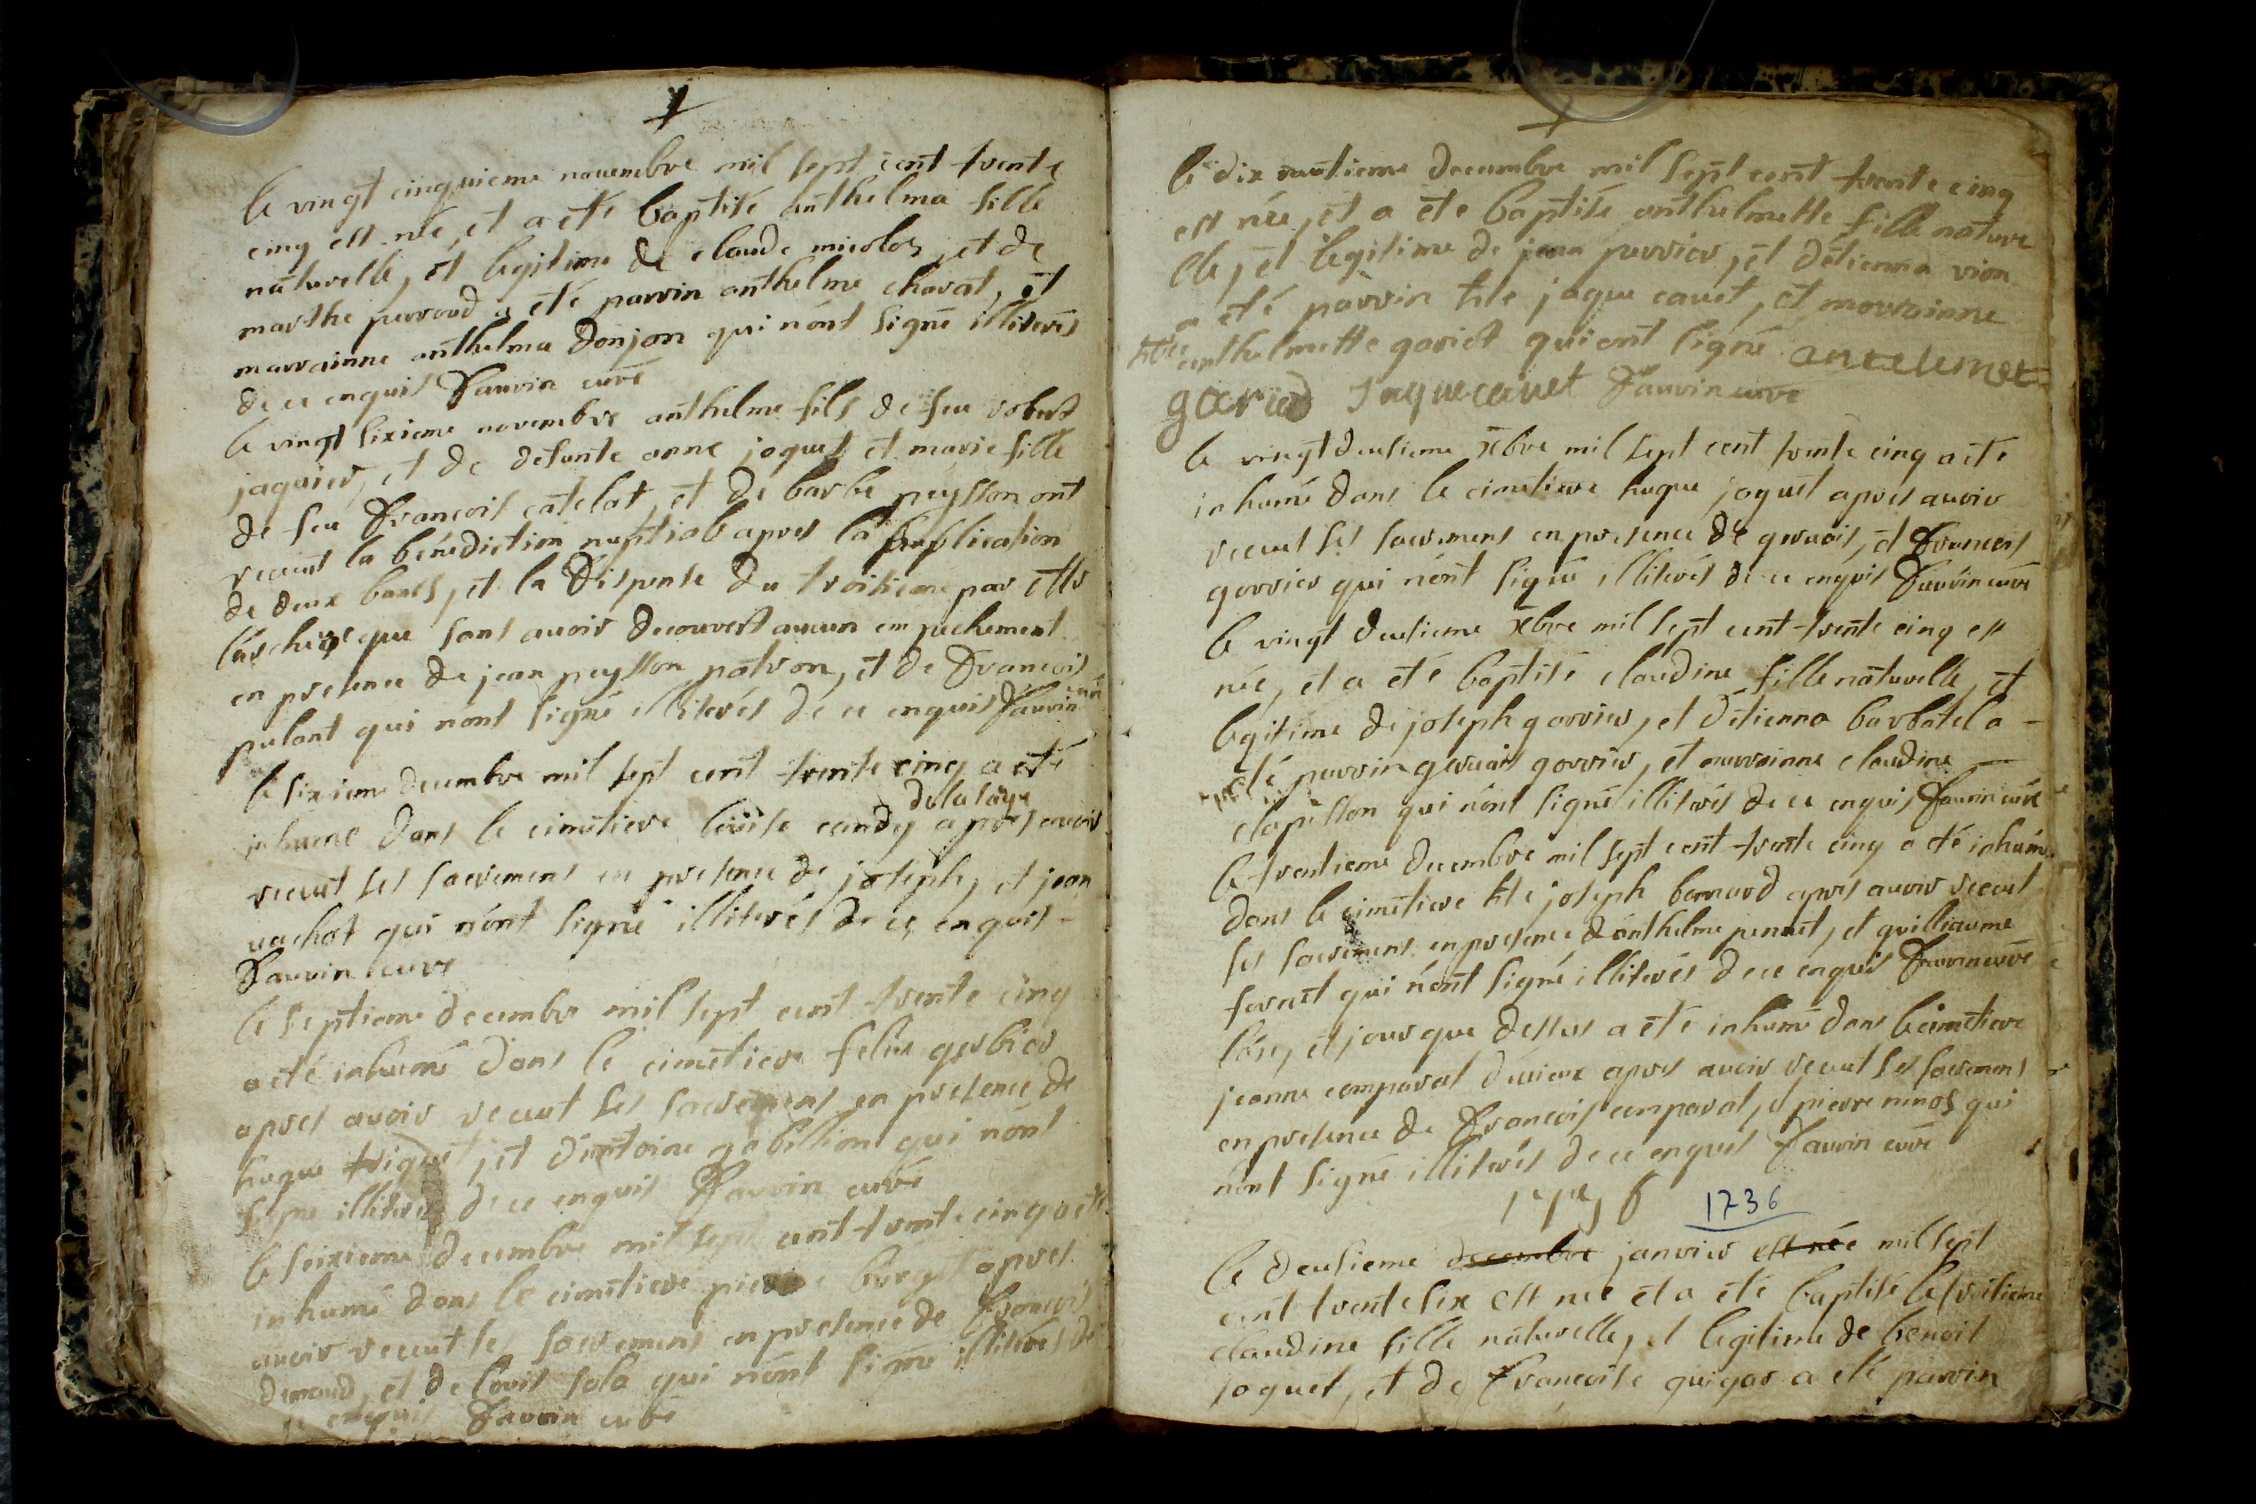 le vingt cinquieme nouembre mil sept cent trente
cinq est né, et a été baptisé anthelma fille
naturelle, et legitime de claude micoloz, et de
marthe perroud a été parrin anthelme charat, et
marrainne anthelma donjon qui n'ont signé illiterés
de ce enquis Fauvin curé
le vingt sixieme novembre anthelme fils de feu robert
jaquier, et de defunte anne joquet et marie fille
de feu Francois catelat, et de barbe peysson ont
recuut la bénediction nuptiale apres la publication
de deux bancs, et la dispense du troisieme par Mr
l'archipretre sans auoir decouvert aucun empechement
en presence de jean peysson patron, et de Francois
pulant qui n'ont signé illiterés de ce enquis Fauvin curé
le sixieme decembre mil sept cent trente cinq a été
de la saye
inhumé dans le cimetiere loüise candy apres auoir
recuut ses sacremens en presence de joseph, et jean
uachot qui n'ont signé illiterés de ce enquis -
Fauvin curé
le septieme decembre mil sept cent trente cinq
a été inhumé dans le cimetiere felix gerbier
apres auoir recuut ses sacremens en presence de
hugue triquet, et d'antoine gabillion qui n'ont
signé illiterés de ce enquis Fauvin curé
le seizieme decembre mil sept cent trente cinq a été
inhumé dans le cimetiere pierre burget apres
auoir recuut ses sacremens en presence de Francois
demaud, et de louis sala qui n'ont signé illiterés de
ce enquis Fauvin curé
le dix decembre mil sept cent trente cinq
est née, et a été baptisé anthelmette fille nature
lle, et legitime de jean perrier, et d'etienna vion
a été parrin hte jaque cauet, et marrainne
anthelmette gariod qui ont signé ancelemet
gariod Jaque cauet Fauvin curé
le vingt deusieme xbre mil sept cent trente cinq a été
inhumé dans le cimetiere hugue joquet apres auoir
recuut ses sacremens en presence de geruais, et Francois
gorrier qui n'ont signé illiterés de ce enquis Fauvin curé
le vingt deusieme xbre mil sept cent trente cinq est
née, et a été baptisé claudine fille naturelle, et
legitime de joseph gorrier, et d'etienna barbatel a -
été parrin geruais gorrier, et marrainne claudine
clapisson qui n'ont signé illiterés de ce enquis Fauvin curé
le trentieme decembre mil sept cent trente cinq a été inhumé
dans le cimetiere hte joseph bernard apres auoir recuut
ses sacremens en presence d'anthelme pennet, et guilliaume
feraut qui n'ont signé illiterés de ce enquis Fauvin curé
l'an, et jour que dessus a été inhumé dans le cimetiere
jeanne comparat apres auoir recuut ses sacremens
en presence de Francois comparat, et pierre minoz qui
n'ont signé illiterés de ce enquis Fauvin curé
1736 1736
le deusieme decembre janvier est née mil sept
cent trente six est née et a été baptisé le troisieme
claudine fille naturelle, et legitime de benoit
joquet, et de Francoise guigar a été parrin